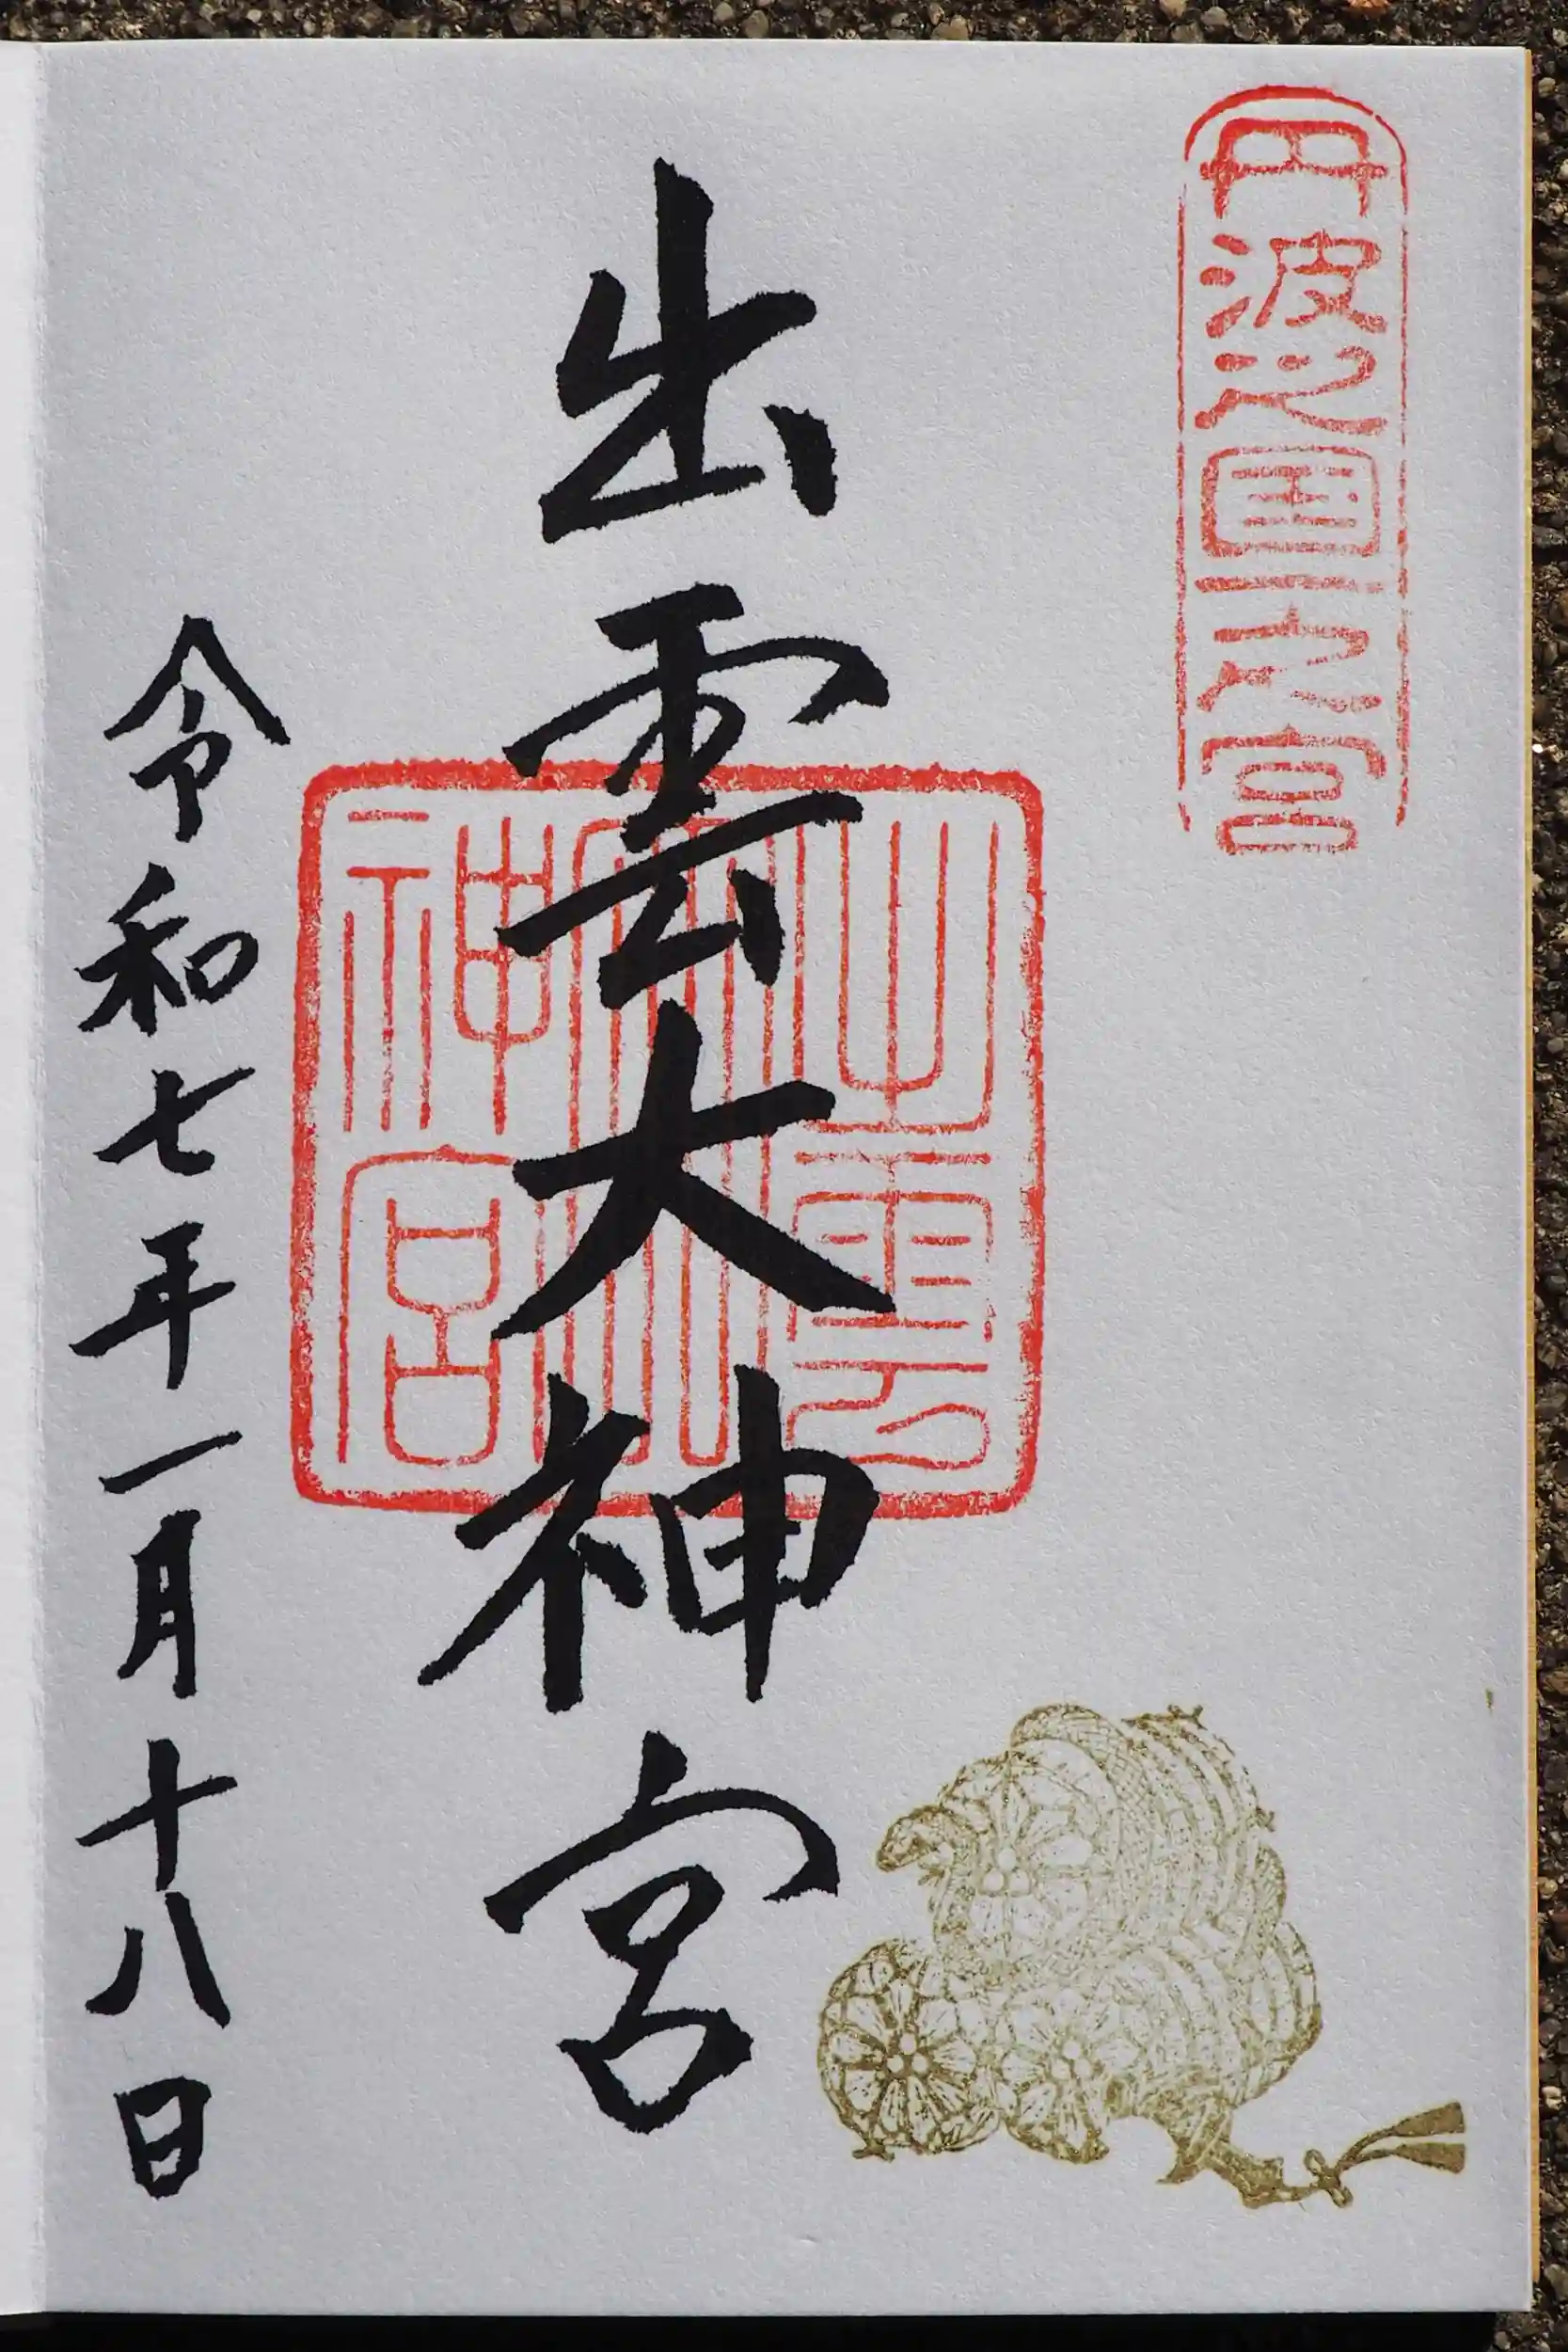 丹波之國一之宮
出雲大神宮
出雲大神宮
令和七年一月十八日